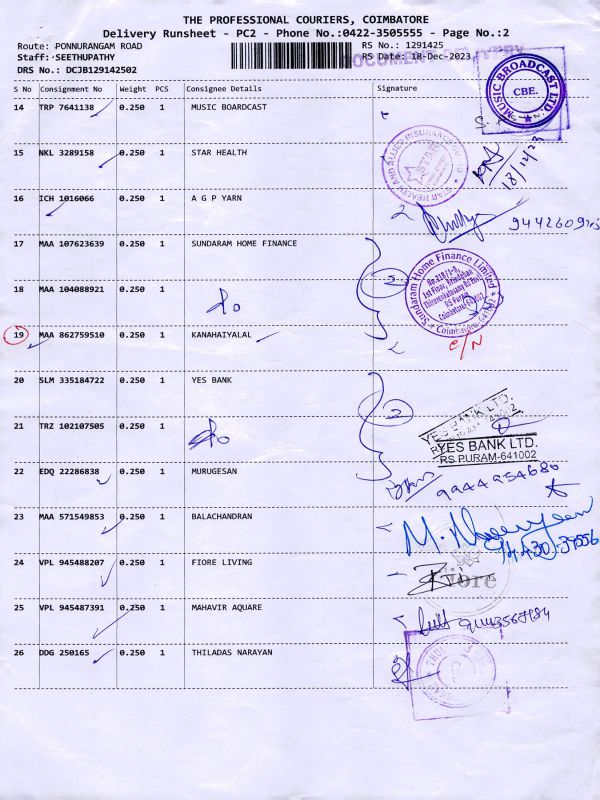 THE PROFESSIONAL COURIERS, COIMBATORE
Delivery Runsheet - PC2 - Phone No.:0422-3505555 - Page No.:2
Route: PONNURANGAM ROAD
RS No.: 1291425
Staff: SEETHUPATHY
RS Date: 18-Dec-2023
DRS No.: DCJB129142502
S No Consignment No Weight PCS Consignee Details Signature
14 TRP 7641138 0.250 1 MUSIC BOARDCAST
MUSIC BROADCAST LTD.
CBE.
15 NKL 3289158 0.250 1 STAR HEALTH
STAR HEALTH AND ALLIED INSURANCE
18/12/23
16 ICH 1016066 0.250 1 A G P YARN
17 MAA 107623639 0.250 1 SUNDARAM HOME FINANCE
Sundaram Home Finance Limited
1st Floor,
R.S Puram
18 MAA 104088921 0.250 1
do
2
19 MAA 862759510 0.250 1 KANAHAIYALAL
C/N
20 SLM 335184722 0.250 1 YES BANK
2
YES BANK LTD.
21 TRZ 102107505 0.250 1
do
YES BANK LTD.
RS PURAM-641002
22 EDQ 22286838 0.250 1 MURUGESAN
9944954686
23 MAA 571549853 0.250 1 BALACHANDRAN
24 VPL 945488207 0.250 1 FIORE LIVING
fiore
25 VPL 945487391 0.250 1 MAHAVIR AQUARE
26 DDG 250165 0.250 1 THILADAS NARAYAN